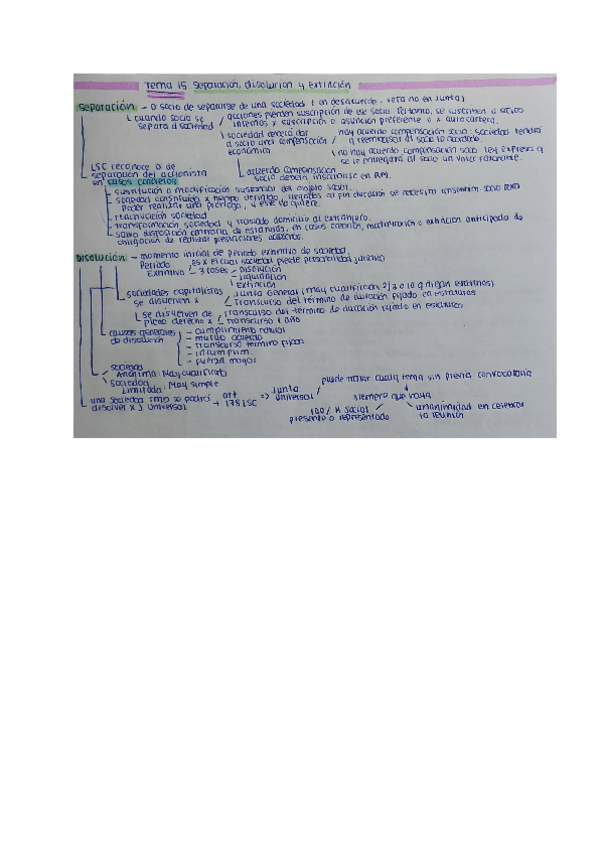 Tema 15 Separación, disolución y extinción
Separación - D socio de separarse de una sociedad ( en desacuerdo, pero no en Junta)
cuando socio se separa d sociedad
acciones pierden suscripción de ese socio. Por tanto, se suscriben a socios
internos x suscripción o asunción preferente o x autocartera.
sociedad tendrá dar
a socio una compensación
económica
hay acuerdo compensación socio: sociedad tendrá
q reembolsar al socio lo acordado
no hay acuerdo compensación socio: ley expresa q
se le entregará al socio un valor razonable.
acuerdo compensación
socio debería inscribirse en R.M.
LSC reconoce D de
separación del accionista
en casos concretos
- sustitución o modificación sustancial del objeto social.
- sociedad constituida x tiempo definido, llegados al fin duración se necesita consentim. socio para
poder realizar una prórroga, y este no quiere.
- reactivación sociedad
- transformación sociedad y traslado domicilio al extranjero.
- salvo disposición contraria de estatutos, en casos creación, modificación o extinción anticipada de
obligación de realizar prestaciones accesorias.
Disolución - momento inicial de periodo extintivo de sociedad.
Periodo Extintivo
es x el cual sociedad pierde personalidad jurídica
3 fases - Disolución
- Liquidación
- Extinción
sociedades capitalistas
se disuelven x
Junta General (may cualificada 2/3 o lo q digan estatutos)
Transcurso del término de duración fijado en estatutos
se disuelven de
pleno derecho x
transcurso del término de duración fijado en estatutos
transcurso 1 año
causas generales
de disolución
- cumplimiento natural
- mutuo acuerdo
- transcurso término fijado
- incumplim.
- fuerza mayor
sociedad
Anónima: May cualificada
sociedad
Limitada: May simple
una sociedad tmb se podrá
disolver x J Universal
→ art 178 LSC ⇒ Junta Universal
puede tratar cualq tema sin previa convocatoria
siempre que haya
100% K social
presente o representado
unanimidad en celebrar
la reunión